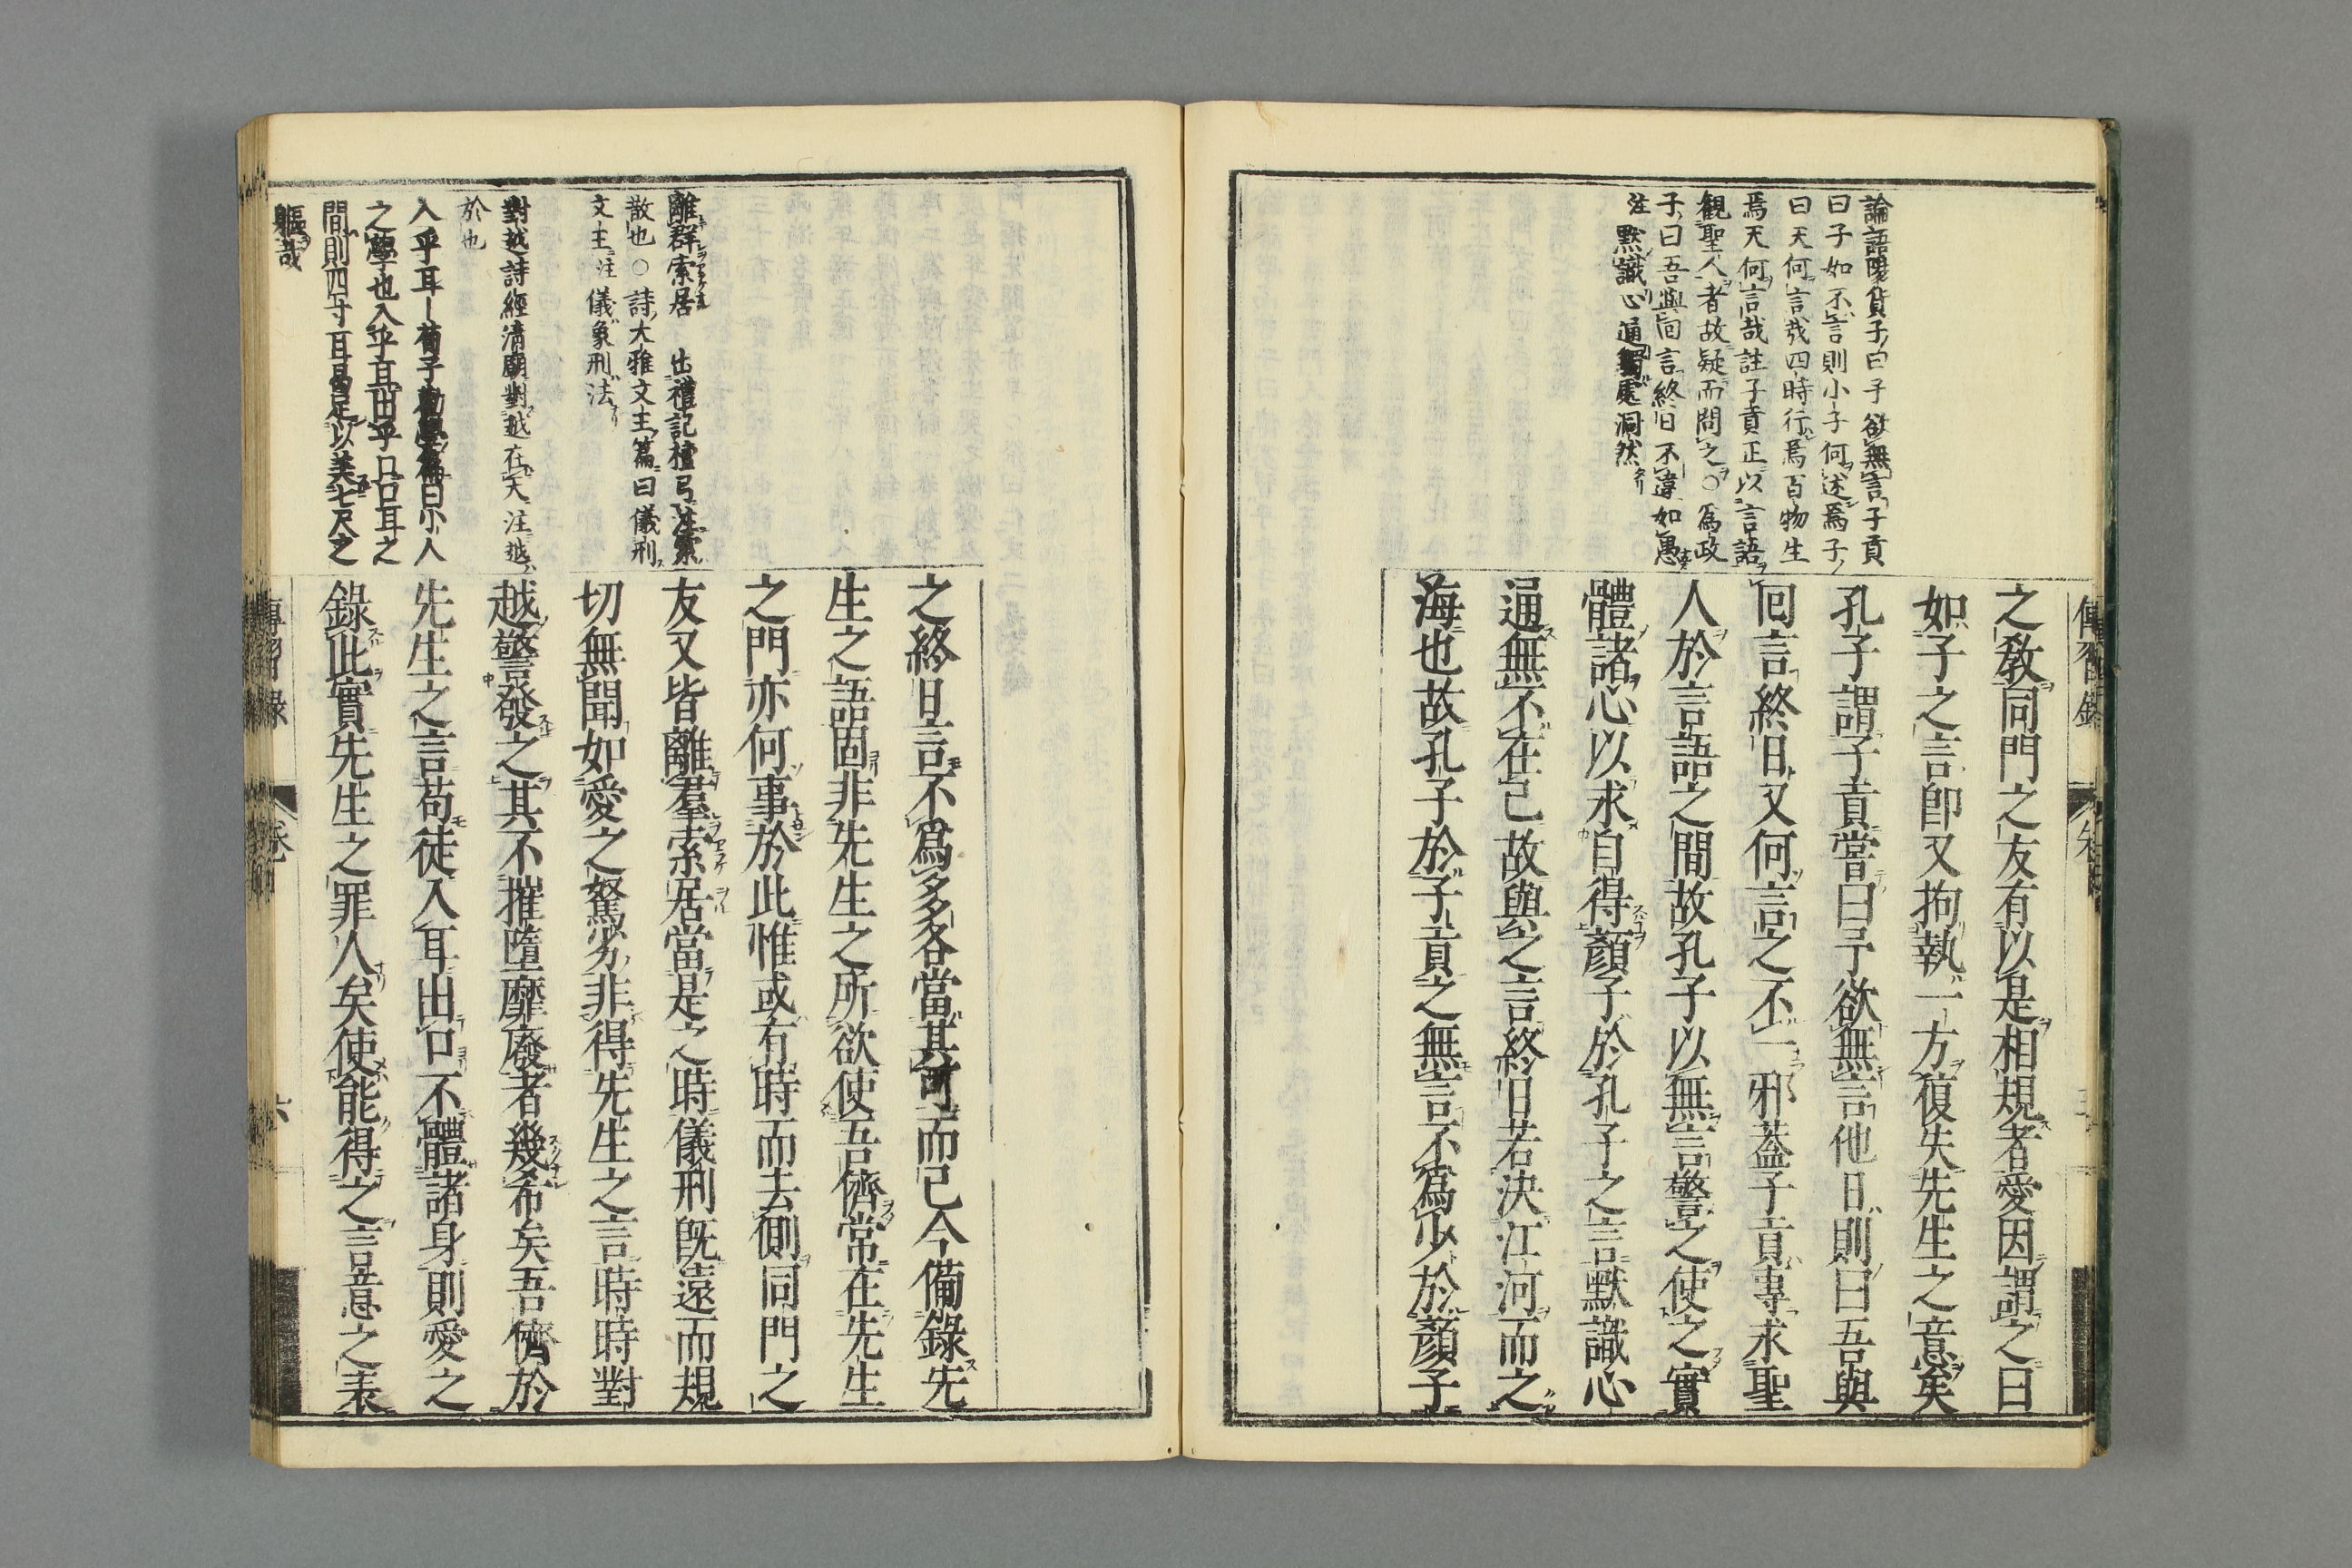 論語陽貨子曰子欲無言子貢
曰子如不言則小子何述焉子
曰天何言哉四時行焉百物生
焉天何言哉註子貢正以言語
観聖人者故疑而問之○為政
子曰吾與囘言終日不違如愚
注 默識心通觸處洞然
之教同門之友有以是相規者愛因謂之曰
如子之言卽又拘執一方復失先生之意矣
孔子謂子貢嘗曰予欲無言他日則曰吾與
囘言終日又何言之不一邪葢子貢專求聖
人於言語之間故孔子以無言警之使之實
體諸心以求自得顏子於孔子之言默識心
通無不在己故與之言終日若決江河而之
海也故孔子於子貢之無言不爲少於顏子
離群索居 出禮記檀弓注索
散也○詩大雅文王篇曰儀刑
文王注儀象刑法
對越詩經淸廟對越在天注越
於也
入乎耳ー荀子勸學篇曰小人
之學也入乎耳出乎口口耳之
間則四寸耳曷足以美七尺之
軀哉
之終日言不爲多各當其可而已今備錄先
生之語固非先生之所欲使吾儕常在先生
之門亦何事於此惟或有時而去側同門之
友又皆離羣索居當是之時儀刑旣遠而規
切無聞如愛之駑劣非得先生之言時時對
越警發之其不摧墮靡廢者幾希矣吾儕於
先生之言苟徒入耳出口不體諸身則愛之
錄此實先生之罪人矣使能得之言意之表
傳習錄
六